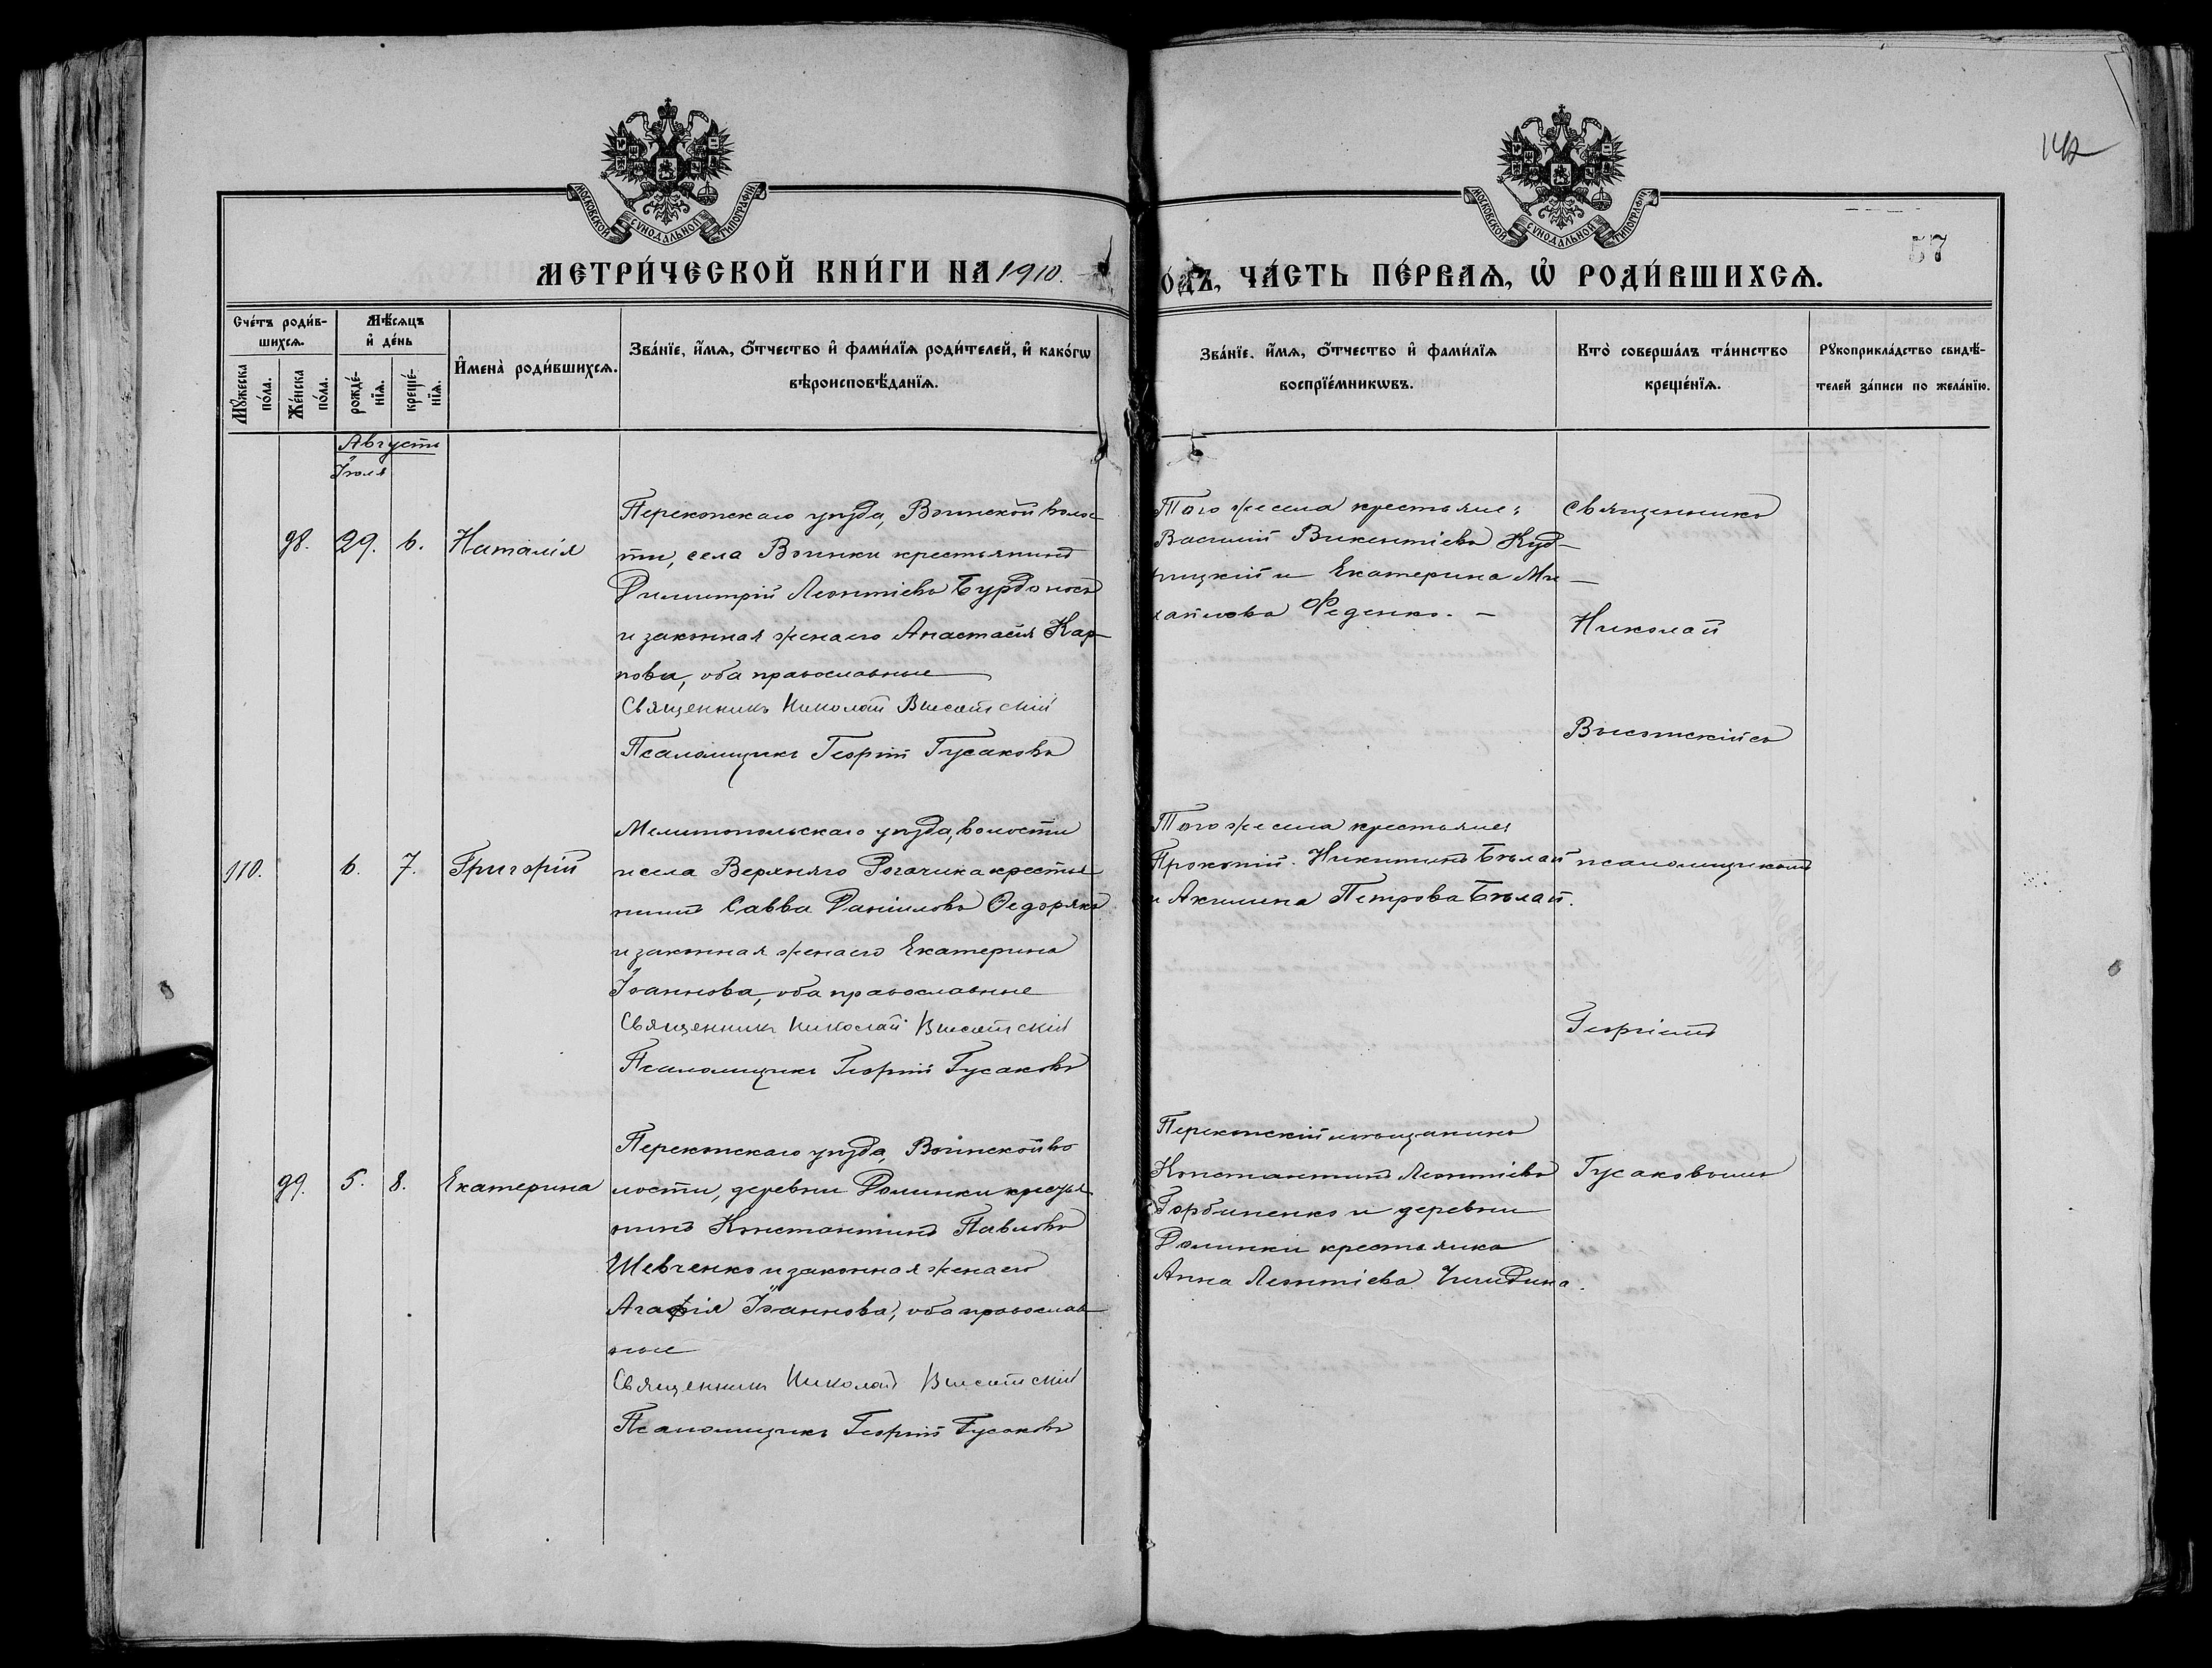 142
57
МОСКОВСКОЙ СѴНОДАЛЬНОЙ ТИПОГРАФІИ
МОСКОВСКОЙ СѴНОДАЛЬНОЙ ТИПОГРАФІИ
МЕТРИ́ЧЕСКОЙ КНИ́ГИ НА 1910.
О́ДЪ, ЧА́СТЬ ПЕ́РВАѦ, Ѽ РОДИ́ВШИХСѦ.
Сче́тъ роди́в-
шихсѧ.
Мꙋ́жеска
по́ла.
Же́нска
по́ла.
Мѣ́сѧцъ
и҆ де́нь
рожде́-
нїѧ.
креще́-
нїѧ.
И҆мена̀ роди́вшихсѧ.
Зва́нїе, и҆́мѧ, ѻ҆́тчество и҆ фами́лїѧ роди́телей, и҆ како́гѡ
вѣроисповѣ́данїѧ.
Зва́нїе, и҆́мѧ, ѻ҆́тчество и҆ фами́лїѧ
воспрїе́мникѡвъ.
Кто̀ соверша́лъ та́инство
креще́нїѧ.
Рꙋкоприкла́дство свидѣ́-
телей за́писи по жела́нїю.
Августъ
Іюля
98. 29. 6. Наталія
Перекопскаго уѣзда, Воинской волос-
ти, села Воинки крестьянинъ
Димитрій Леонтіевъ Бурдоносъ
и законная жена его Анастасія Кар-
пова, оба православные
Священникъ Николай Высотскій
Псаломщикъ Георгій Гусаковъ
Того же села крестьяне:
Василій Викентіевъ Куд-
рицкій и Екатерина Ми-
хайлова Феденко. –
Священникъ
Николай
Высотскій съ
110. 6. 7. Григорій
Мелитопольскаго уѣзда, волости
и села Верхняго Рогачика крестья
нинъ Савва Даніиловъ Федорякъ
и законная жена его Екатерина
Іоаннова, оба православные
Священникъ Николай Высотскій
Псаломщикъ Георгій Гусаковъ
Того же села крестьяне:
Прокопій Никитинъ Бѣлай
и Акилина Петрова Бѣлай.
псаломщикомъ
Георгіемъ
99. 5. 8. Екатерина
Перекопскаго уѣзда, Воинской во
лости, деревни Долинки крестья
нинъ Константинъ Павловъ
Шевченко и законная жена его
Агафія Іоаннова, оба православ
ные
Священникъ Николай Высотскій
Псаломщикъ Георгій Гусаковъ
Перекопскій мѣщанинъ
Константинъ Леонтіевъ
Горбиненко и деревни
Долинки крестьянка
Анна Леонтіева
Гусаковымъ